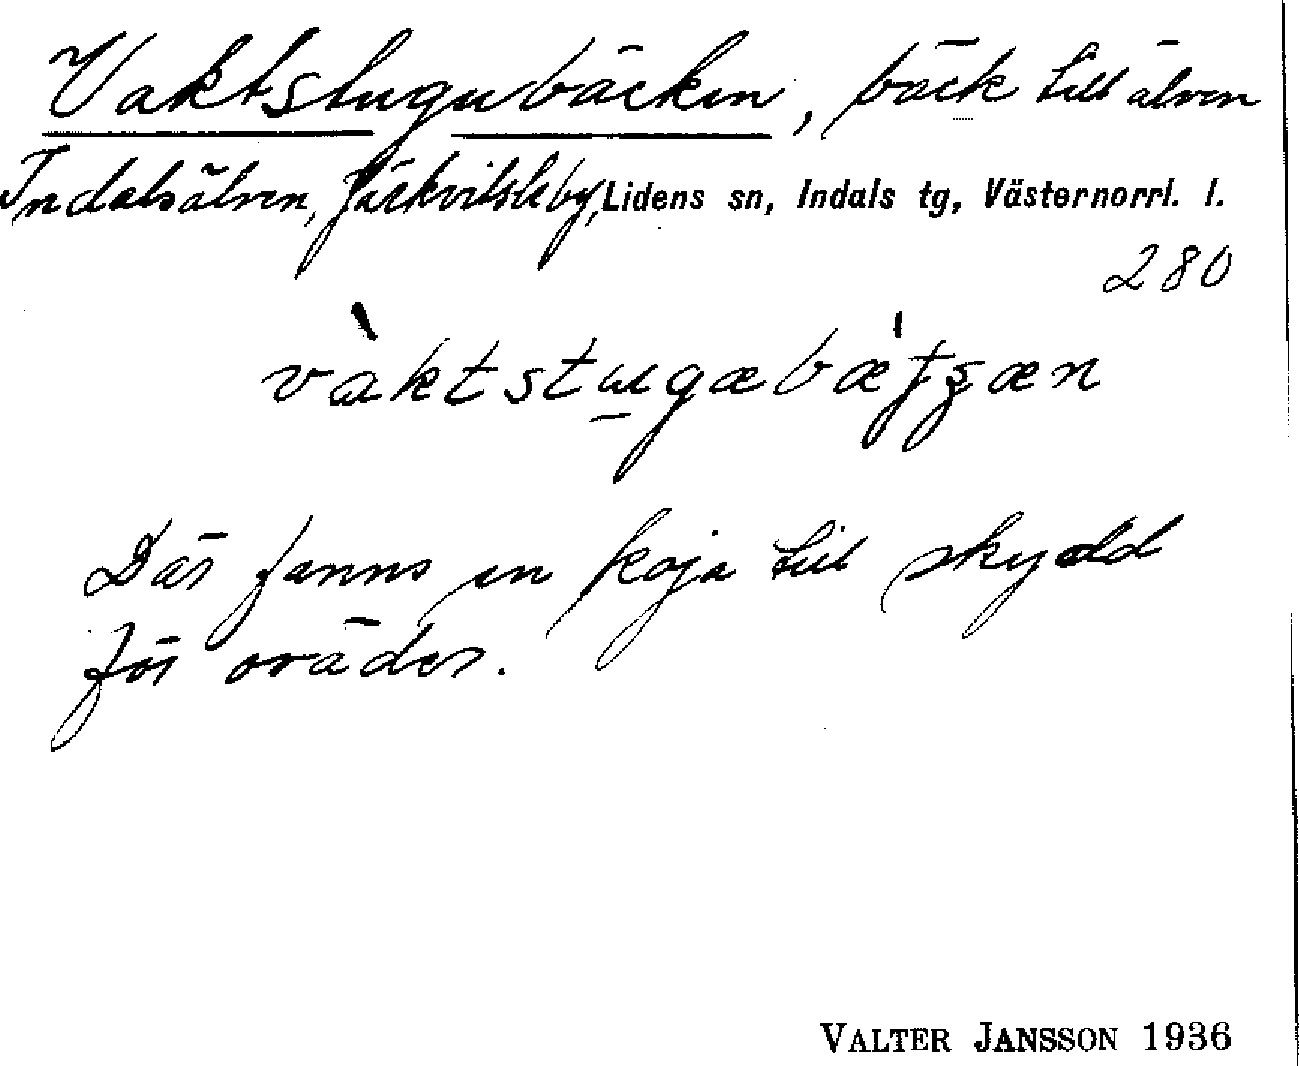 Vaktstugubäcken, bäck till älven
Indalsälven, Järkvitsle by, Lidens sn, Indals tg, Västernorrl. l.
280
Där fanns en koja till skydd
för oväder.
VALTER JANSSON 1936